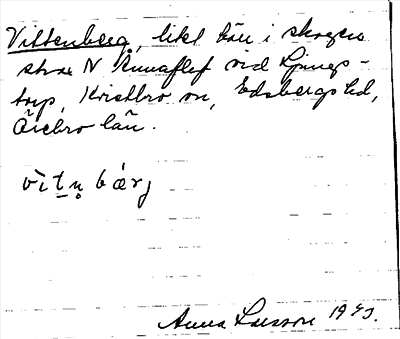 Vittenberg, litet häu i skogen
strax N Runaflef vid Ljungs-
torp, Kvistbro sn, Edsbergs hd,
Örebro län.
vìt̠n̥bǽrj
Anna Larsson 1943.